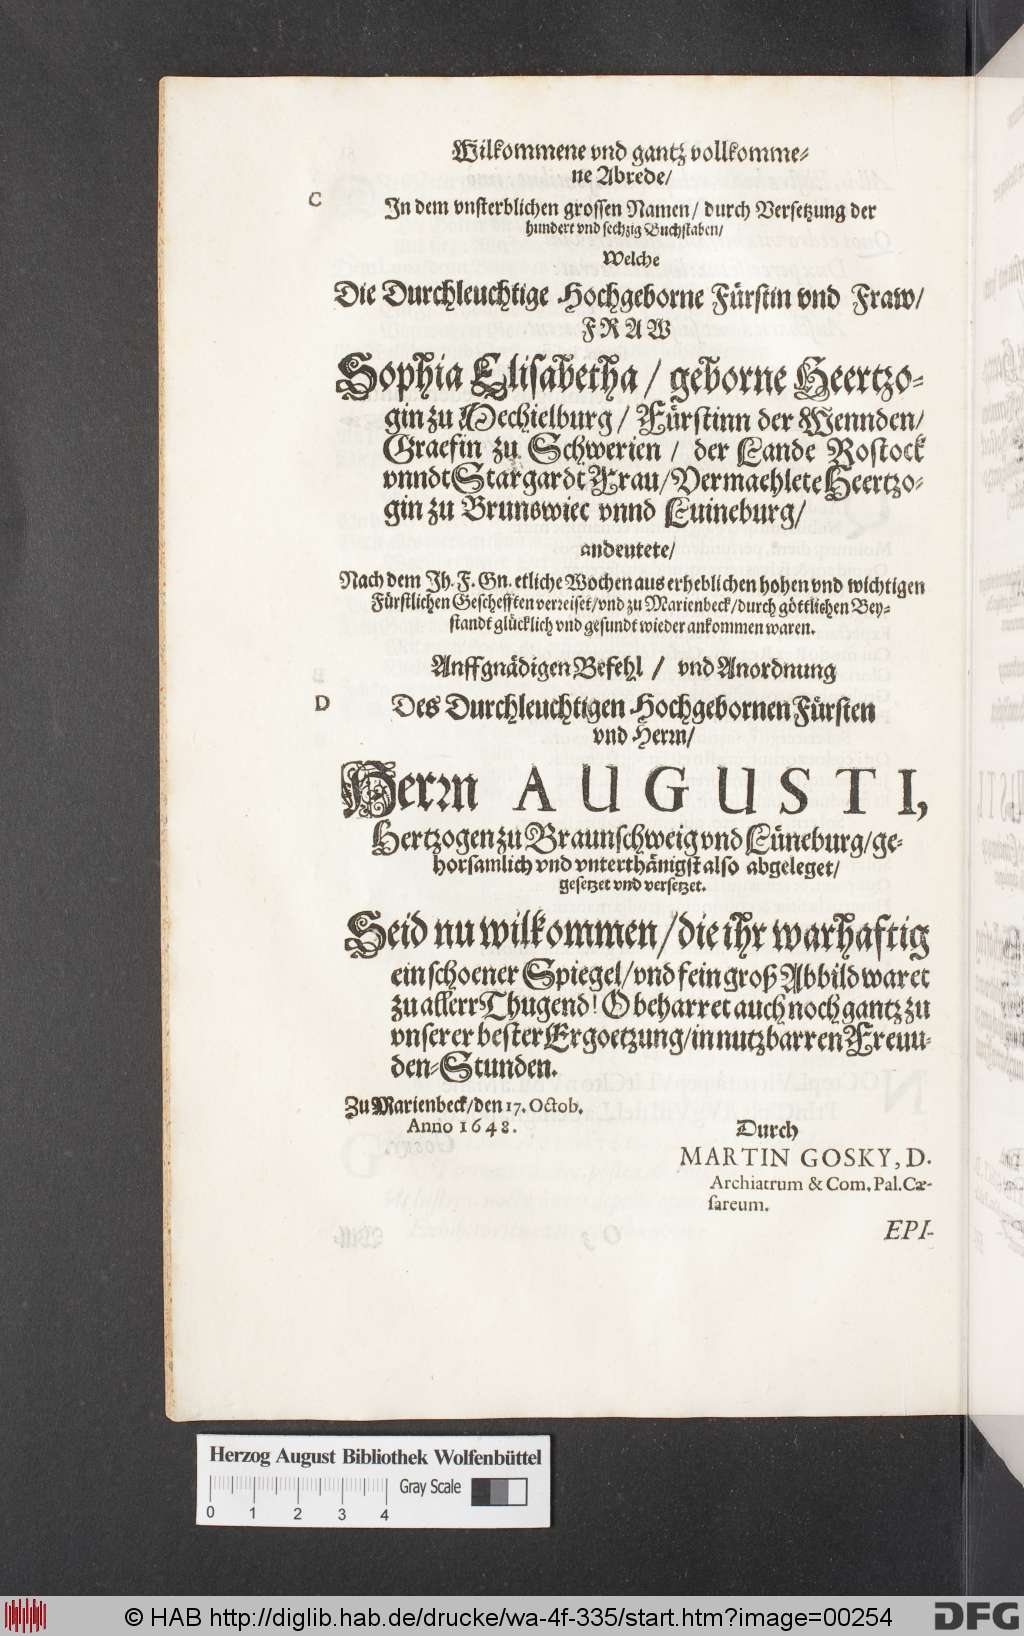 Wilkommene vnd gantz vollkomme-
ne Abrede/
C
In dem vnsterblichen grossen Namen/ durch Versetzung der
hundert vnd sechzig Buchstaben/
Welche
Die Durchleuchtige Hochgeborne Fürstin vnd Fraw/
FRAW
Sophia Elisabetha / geborne Heertzo-
gin zu Mechielburg / Fürstinn der Wennden/
Graefin zu Schwerien / der Lande Rostock
vnndt Stargardt Frau/ Vermaehlete Heertzo-
gin zu Brunswiec vnnd Luineburg/
andeutete/
Nach dem Jh. F. Gn. etliche Wochen aus erheblichen hohen vnd wichtigen
Fürstlichen Geschefften verreiset/ vnd zu Marienbeck/ durch göttlichen Bey-
standt glücklich vnd gesundt wieder ankommen waren.
Anff gnädigen Befehl / vnd Anordnung
D
Des Durchleuchtigen Hochgebornen Fürsten
vnd Herrn/
Herrn AUGUSTI,
Hertzogen zu Braunschweig vnd Lüneburg/ ge-
horsamlich vnd vnterthänigst also abgeleget/
gesetzet vnd versetzet.
Seid nu wilkommen/ die ihr warhaftig
ein schoener Spiegel/ vnd fein groß Abbild waret
zu allerr Thugend! O beharret auch noch gantz zu
vnserer bester Ergoetzung/ in nutzbarren Freuu-
den-Stunden.
Zu Marienbeck/ den 17. Octob.
Anno 1648.
Durch
MARTIN GOSKY, D.
Archiatrum & Com. Pal. Cæ-
sareum.
EPI-
Herzog August Bibliothek Wolfenbüttel
Gray Scale
0 1 2 3 4
© HAB http://diglib.hab.de/drucke/wa-4f-335/start.htm?image=00254
DFG